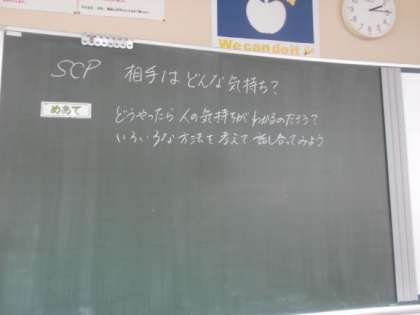 We can do it
SCP 相手は どんな気持ち?
めあて
どうやったら 人の気持ちが わかるのだろう?
いろいろな方法を考えて 話し合ってみよう